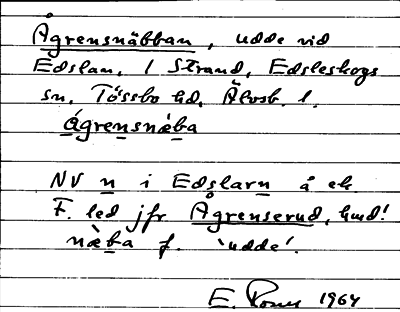 Ågrensnäbban, udde vid
Edslan, i Strand, Edsleskogs
sn, Tössbo hd, Älvsb. l.
ágrensnæba
NV n i Edslarn å ek
F. led jfr Ågrenserud, hmd!
næ̀ba f. 'udde'.
E. 1964